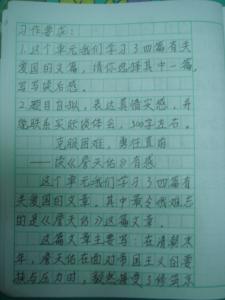 习作要求：
1.这个单元我们学习了四篇有关
爱国的文篇，请你选择其中一篇，
写写读后感。
2.题目自拟，表达真情实感，并
能联系实际谈体会，500字左右。
克服困难，勇往直前
——读《詹天佑》有感
这个单元我们学习了四篇有
关爱国的文章，其中最令我难忘
的是《詹天佑》这篇文章。
这篇文章主要写：在清朝末
年，詹天佑在面对帝国主义的要
挟与压力时，毅然接受了修筑京